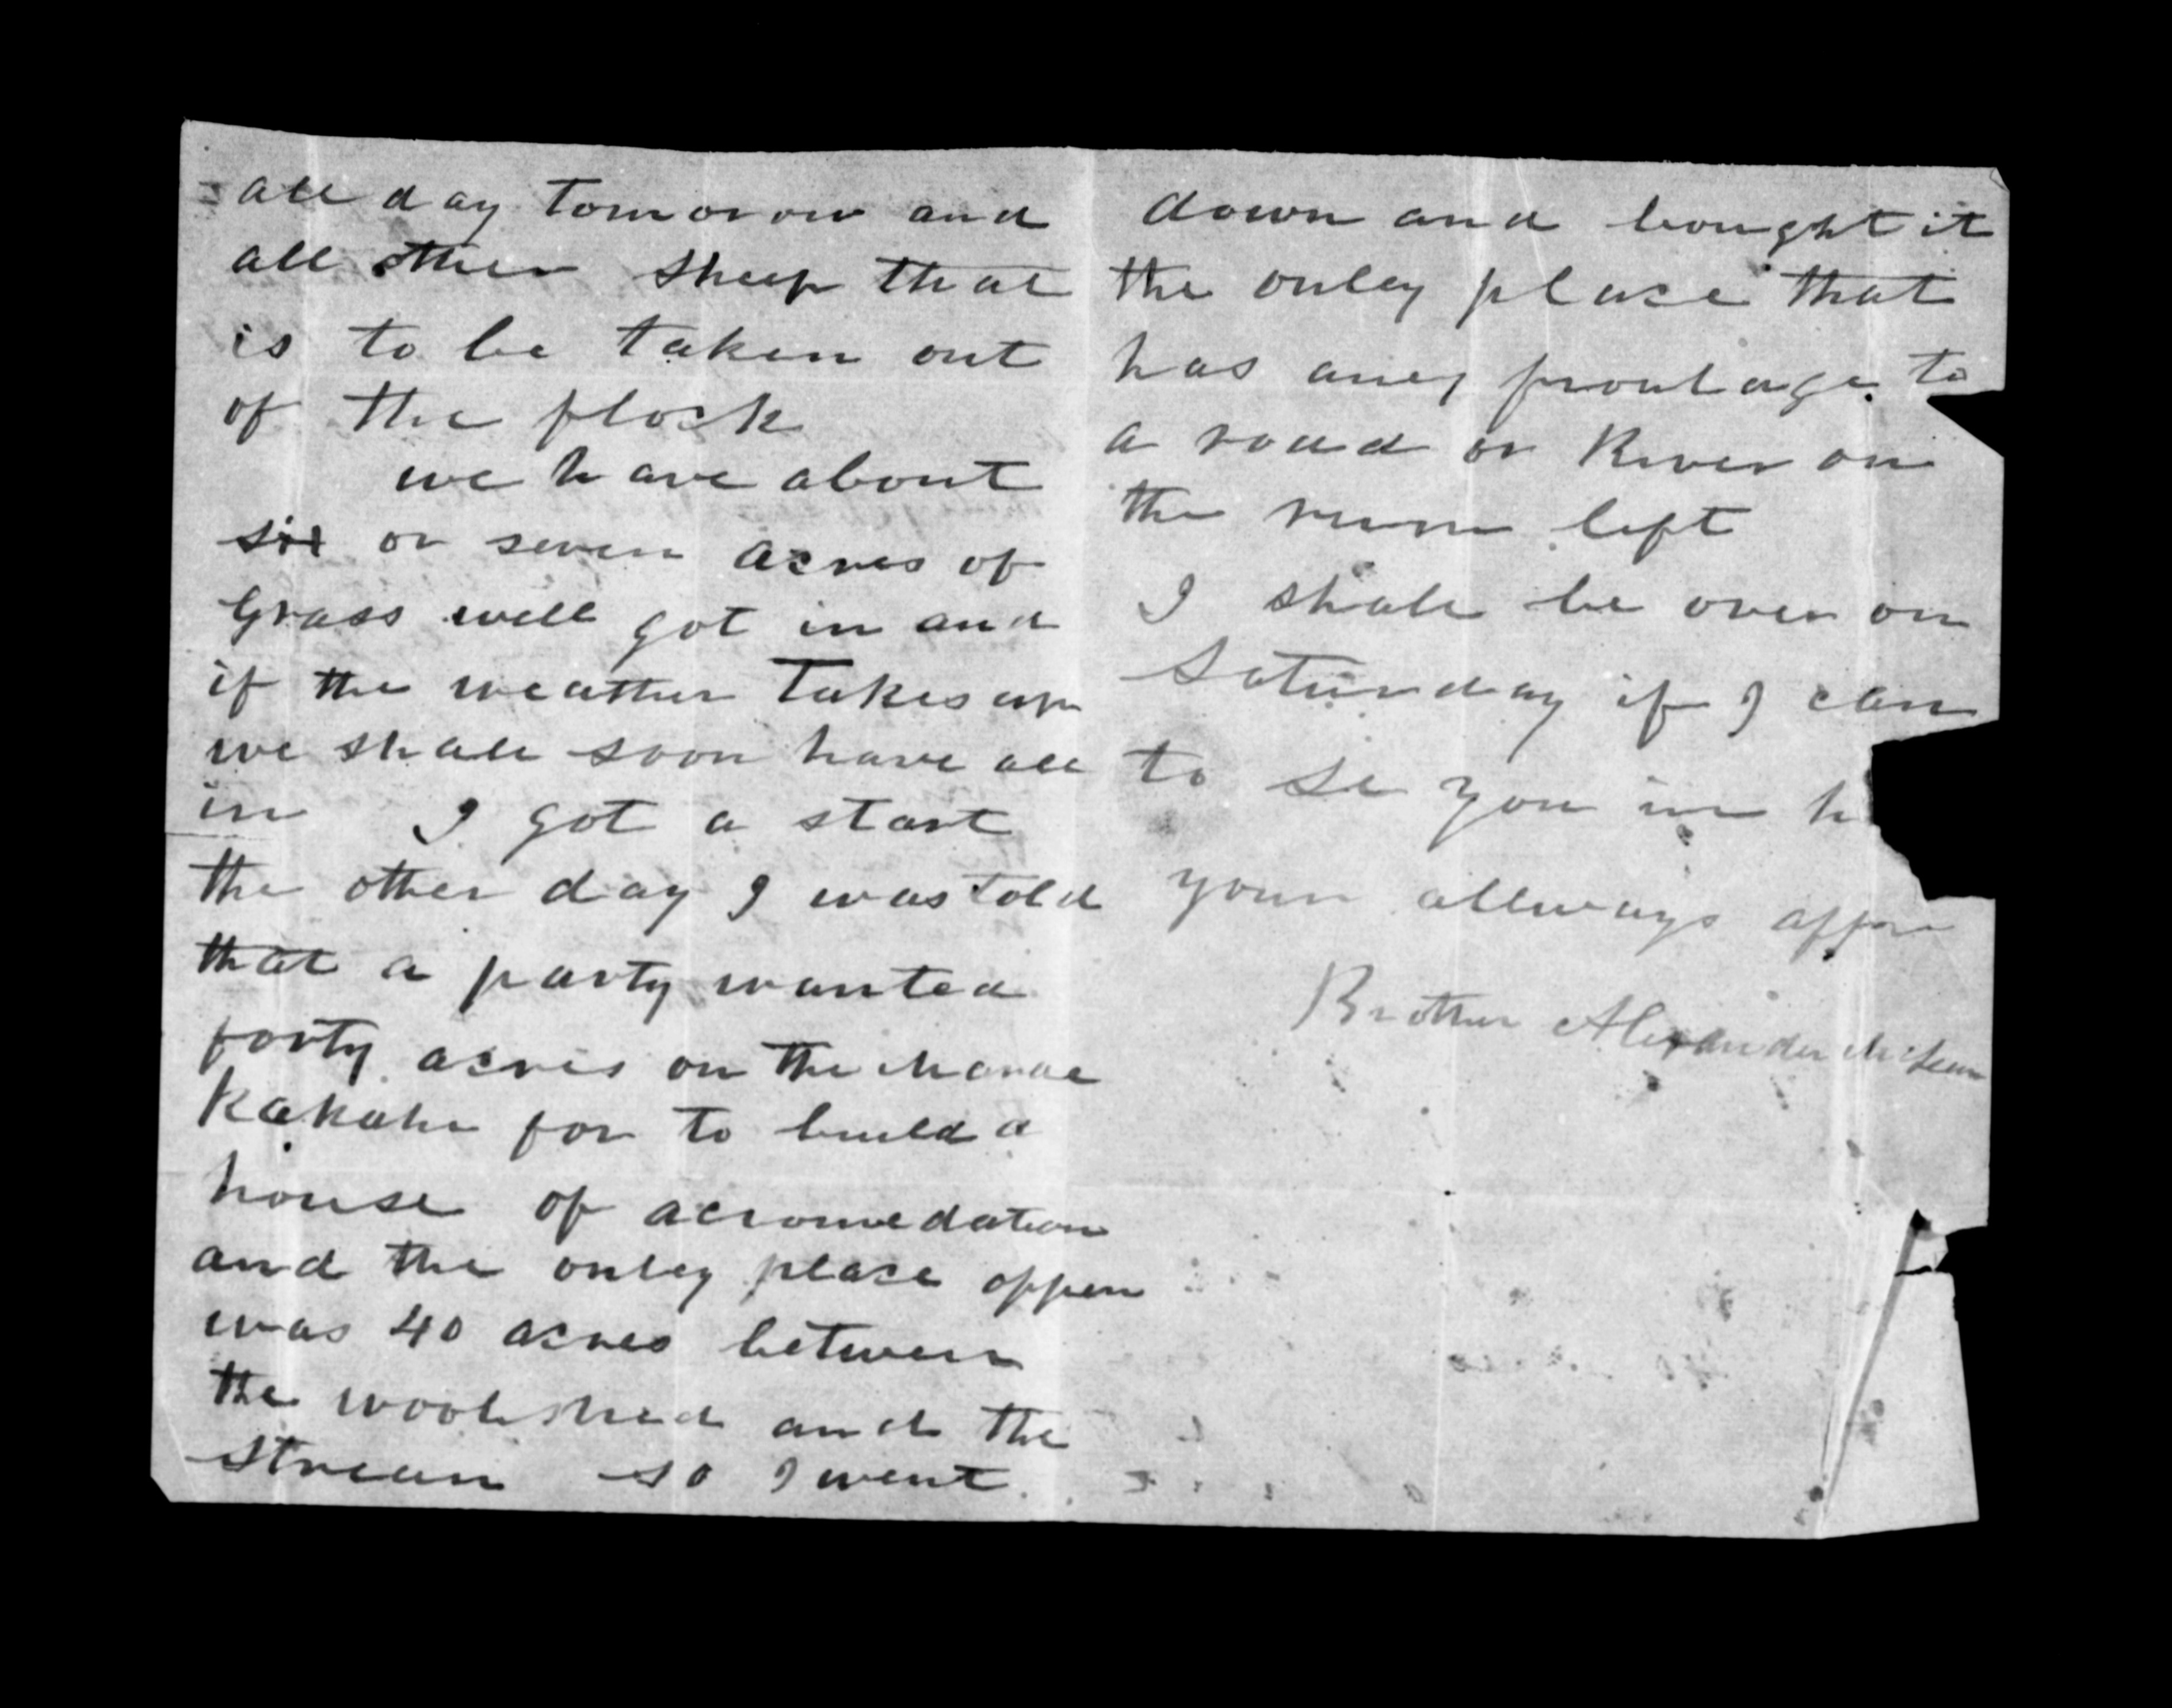 all day tomorow and
all other sheep that
is to be taken out
of the flock
we have about
six or seven acres of
Grass well got in and
if the weather takes up
we shall soon have all
in I got a start
the other day I was told
that a party wanted
forty acres on the Marae
Kakaho for to build a
house of accomedation
and the onley place oppen
was 40 acres between
the woolshed and the
stream so I went
down and bought it
the onley place that
has aney frontage to
a road or River on
the runn left
I shall be over on
Saturday if I can
to se you in h
your allways affe
Brother Alexander McLean